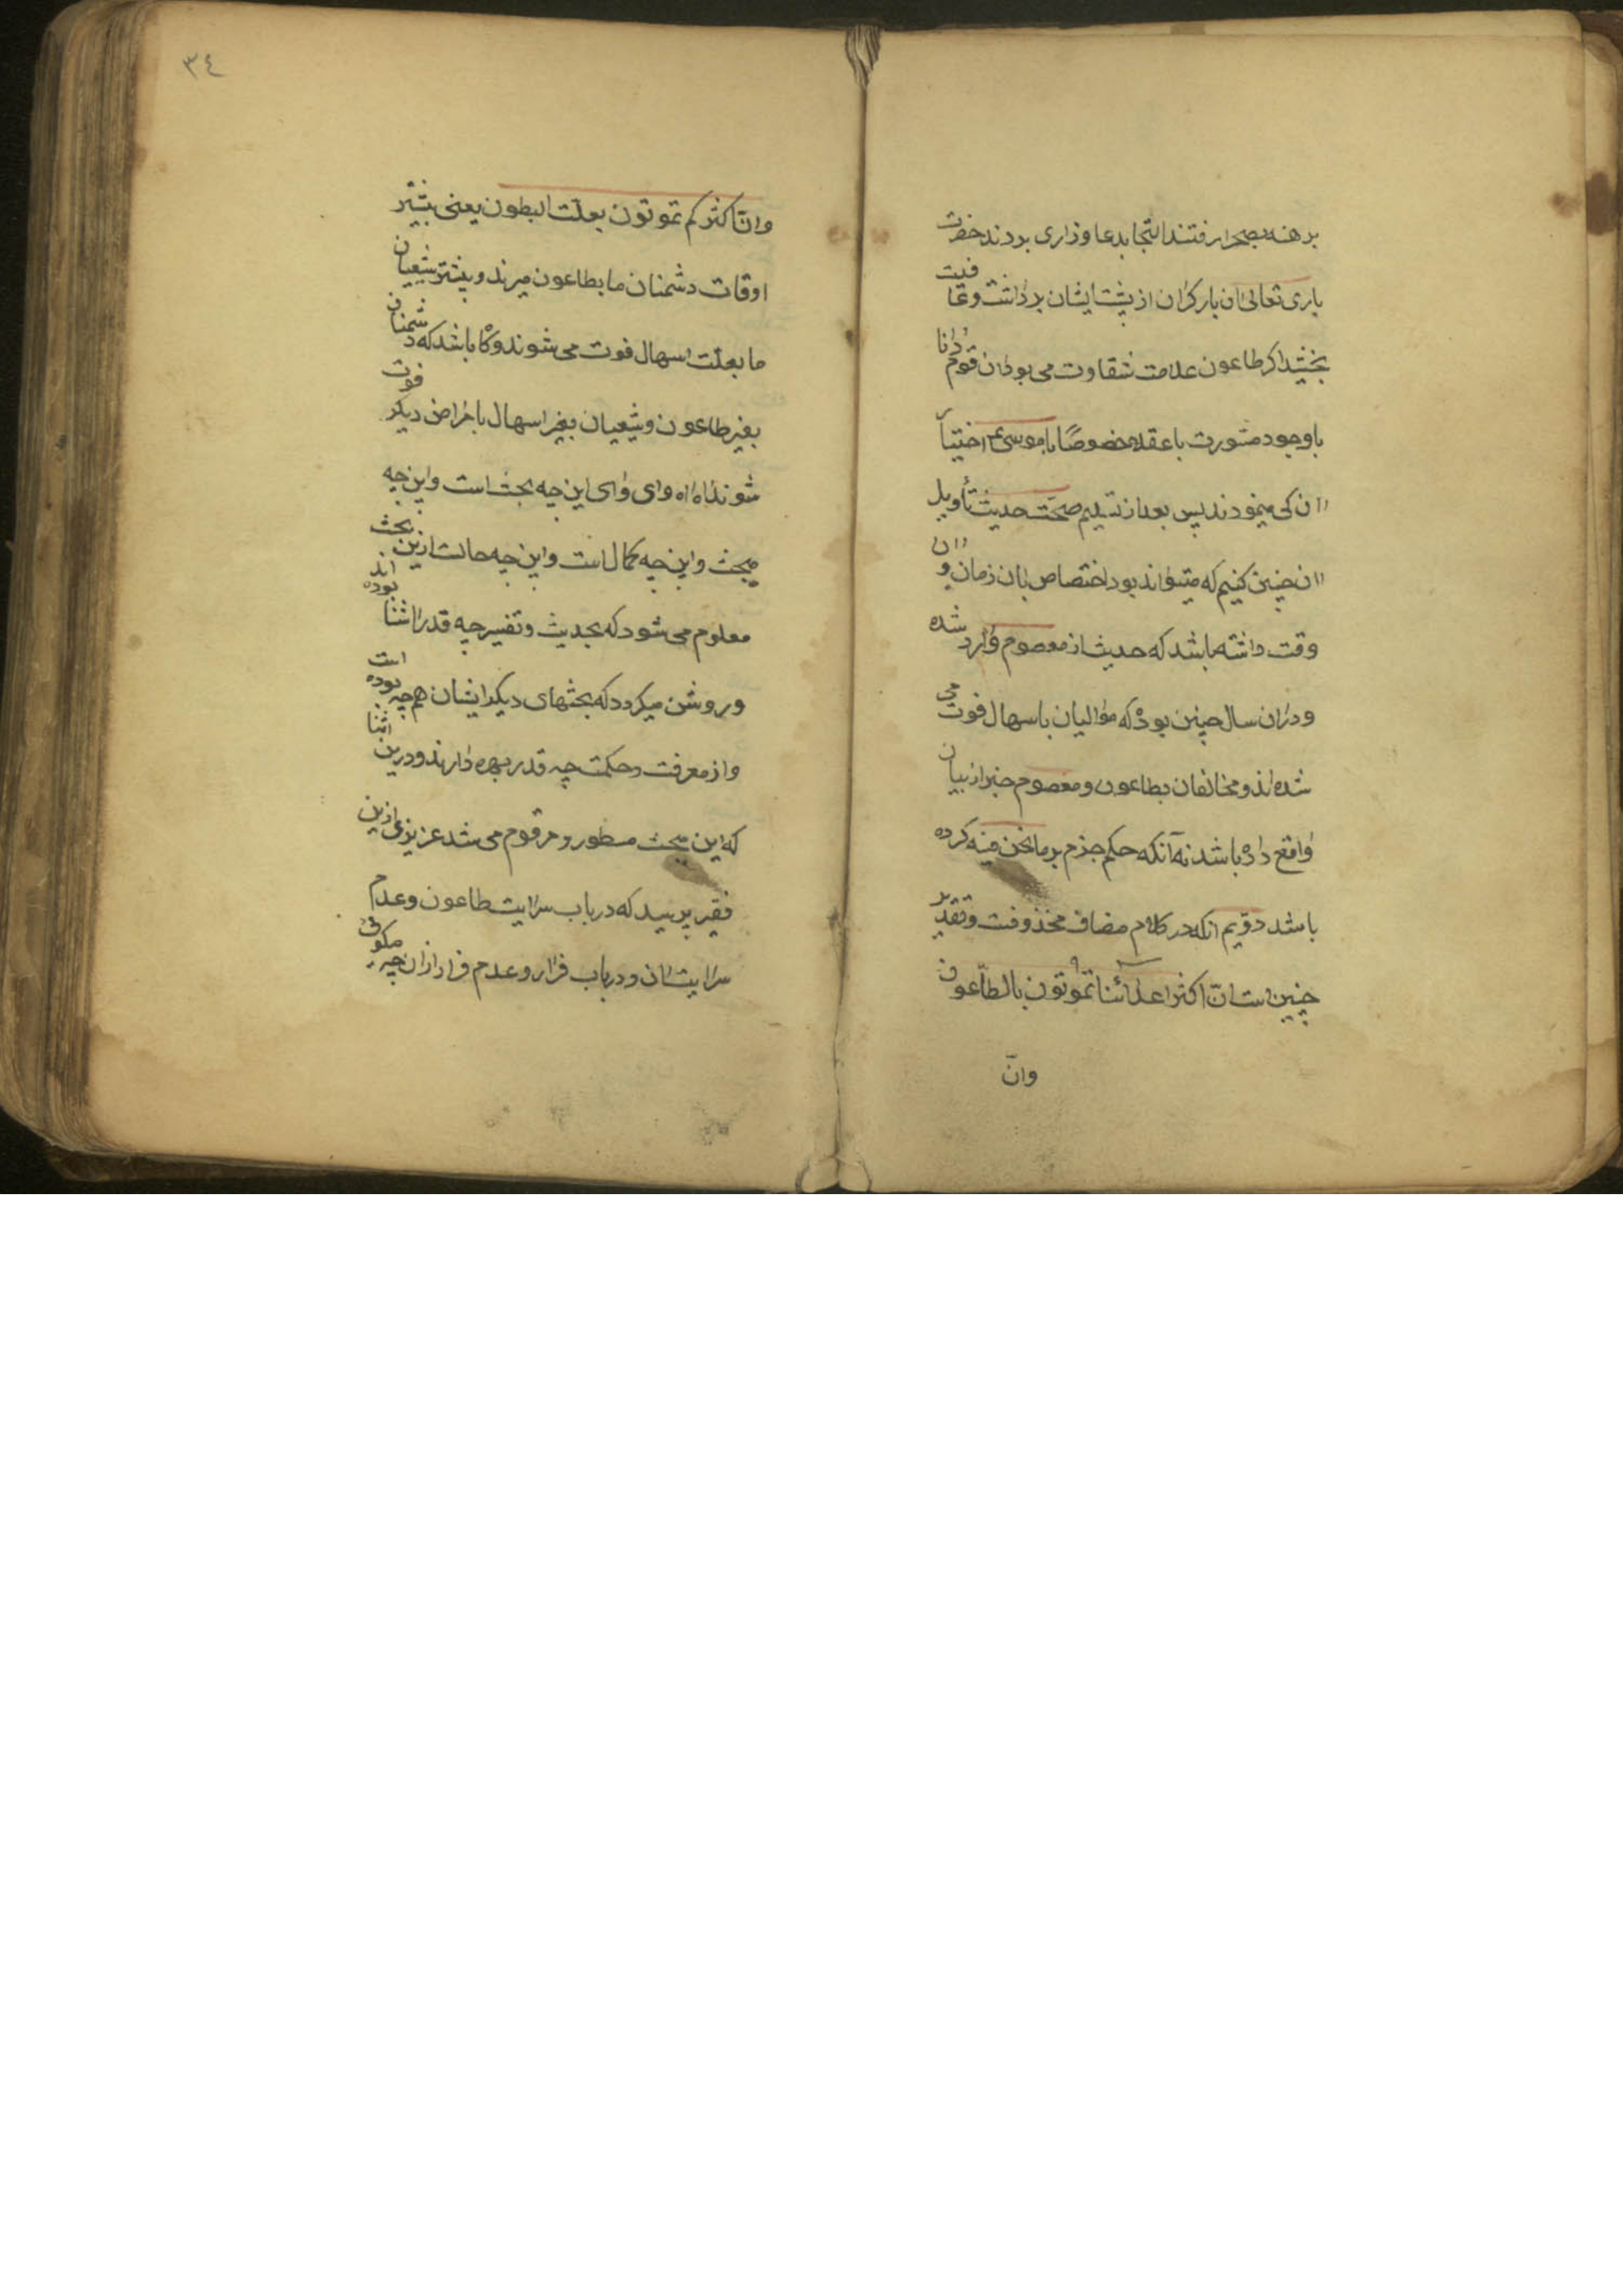 برهنه بصحرا رفتند التجا بدعا و زاری بردند حضرت
باری تعالی ان بار کران از پشت ایشان برداشت و عافیت
بخشید اکر طاعون علامت شقاوت می بود ان قوم دانا
باوجود مشورت با عقلا خصوصًا با موسی ع اختیار
ان کی مینمودند پس بعد از تسلیم صحّت حدیث تأویل
ان چنین کنیم که میتواند بود اختصاص بان زمان و ان
وقت داشته باشد که حدیث از معصوم وارد شده
ودران سال چنین بوده که موالیان باسهال فوت می
شده اند و مخالفان بطاعون و معصوم خبر از بیان
واقع داده باشد نه آنکه حکم جزم بر مانحن فیه کرده
باشد دوّیم انکه در کلام مضاف محذوفست و تقدیر
چنین است انّ اکثر اعدائنا تموتون بالطّاعون
وانّ
٣٤
وانّ اکثرکم تموتون بعلّت البطون یعنی بیشتر
اوقات دشمنان ما بطاعون میرند و بیشتر شیعیان
ما بعلّت اسهال فوت می شوند و کاه باشد که دشمنان
بغیر طاعون و شیعیان بغیر اسهال بامراض دیکر فوت
شوند اه اه وای وای این چه بحث است و این چه
مبحث و این چه کمال است و این چه حالست ازین بحث
معلوم می شود که بحدیث و تفسیر چه قدر اشنا بوده اند
و روشن میکردد که بحثهای دیکر ایشان هم چه بوده است
و از معرفت و حکمت چه قدر بهره دارند و درین اثنا
که این مبحث مسطور و مرقوم می شد عزیزی ازین
فقیر پرسید که در باب سرایت طاعون و عدم
سرایت ان و در باب فرار و عدم فرار ازان چه میکوئی